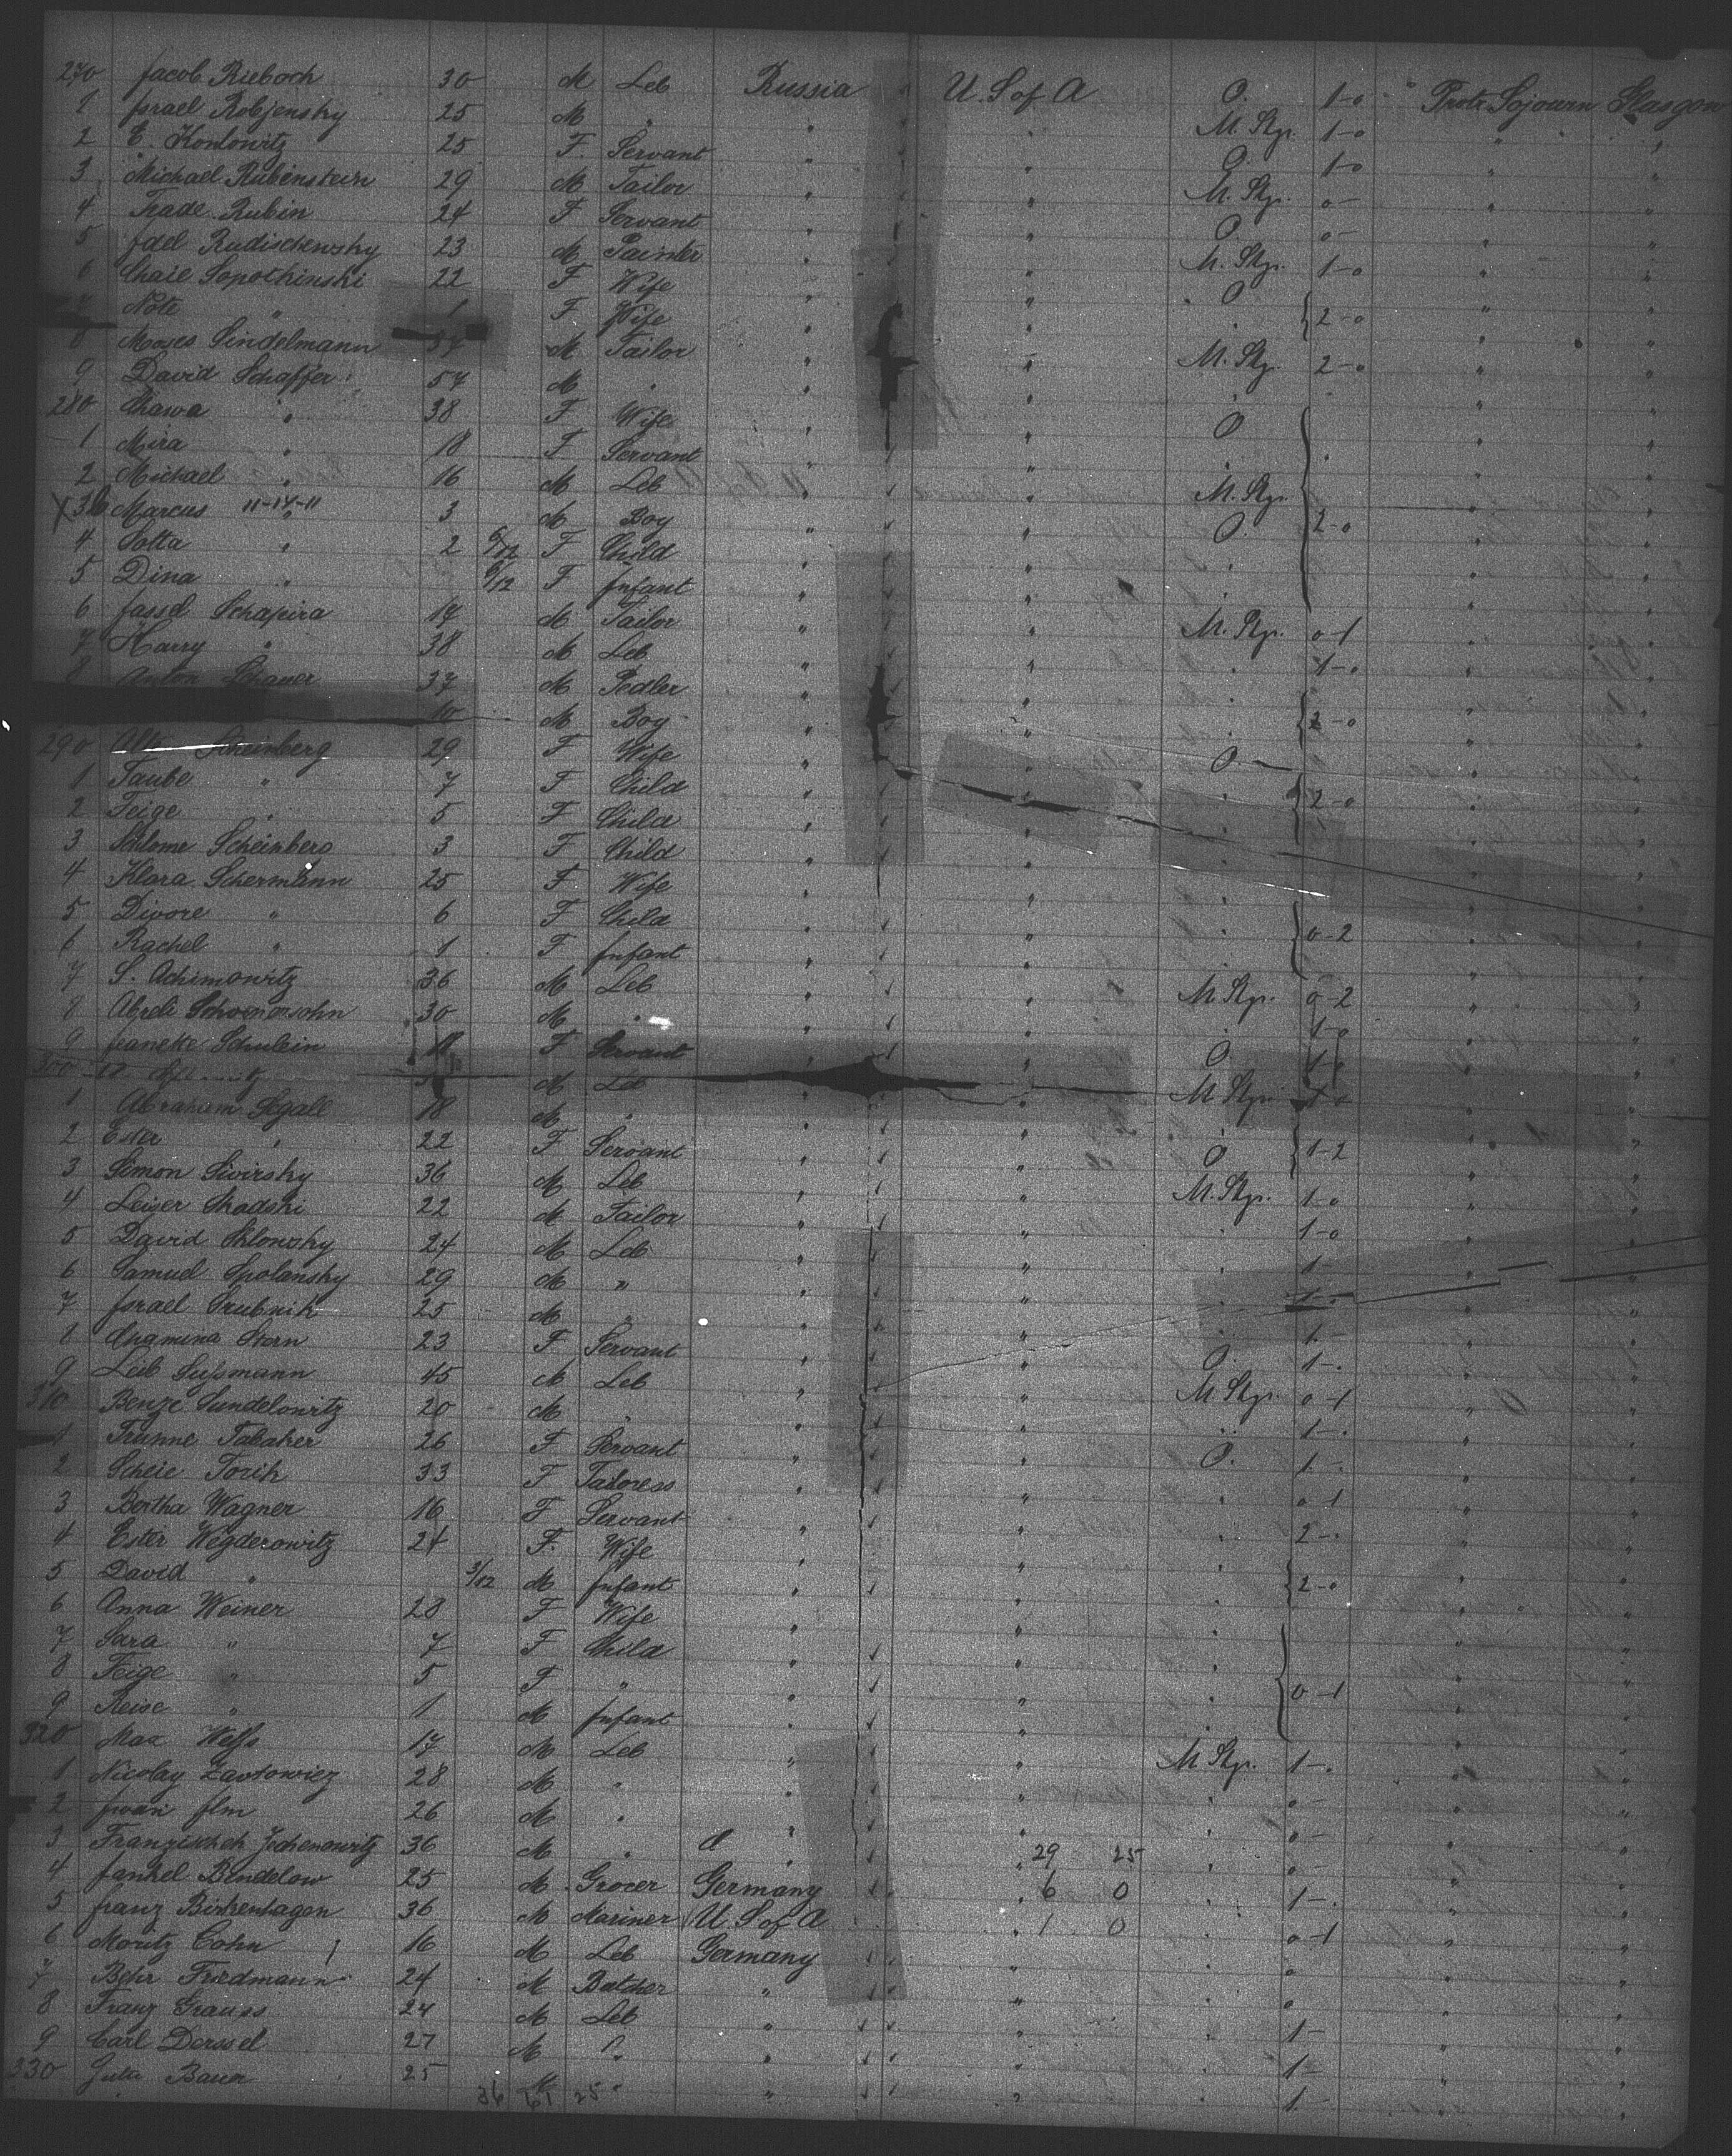 270 Jacob Rieboch 30 M Leb Russia U. S of A O. 1-0 " Protr Sojourn Glasgow
1 Israel Robjensky 25 M " " " M. Stgr. 1-0 " "
2 E. Konlowitz 25 F. Servant " " O. 1-0 " "
3 Michael Rubenstein 29 M Tailor " " M. Stgr. 0- " "
4 Trade Rubin 24 F Servant " " O. 0- " "
5 Idel Rudischewsky 23 M Painter " " M. Stgr. 1-0 " "
6 Chaie Sopothinski 22 F Wife " " O " "
Note " 1 F Wife " " " 2-0 " "
8 Moses Sindelmann 37 M Tailor " " M. Stgr. 2-0 " "
9 David Schaffer 57 M " " " " " "
280 Chawa " 38 F Wife " " O " "
1 Mira " 18 F Servant " " " " "
2 Michael " 16 M Leb " " M. Stgr. " "
X 3 Marcus 11-14-11 " 3 M Boy " " O. 2-0 " "
4 Sotta " 2 F Child " " " " "
5 Dina " 6/12 F Infant " " " " "
6 Jassel Schapira 17 M Tailor " " M. Stgr. 0-1 " "
7 Harry " 38 M Leb " " " 1-0 " "
8 Anton Schauer 37 M Pedler " " " " "
10 M Boy " " " 2-0 " "
290 Scheinberg 29 F Wife " " O " "
1 Taube " 7 F Child " " " 2-0 " "
2 Feige " 5 F Child " " " " "
3 Schlome Scheinberg 3 F Child " " " " "
4 Klara Schermann 25 F Wife " " " " "
5 Divore " 6 F Child " " " 0-2 " "
6 Rachel " 1 F Infant " " " " "
7 S. Achimowitz 36 M Leb " " M Stgr. 0-2 " "
8 30 M " " " " 1-0 " "
9 Jeanette Schulein 18 F Servant " " O. 1-0 " "
300 M Leb " " M Stgr. " "
1 Abraham Segall 18 M " " " " " "
2 Ester " 22 F Servant " " O 1-2 " "
3 Simon Sivirsky 36 M Leb " " M. Stgr. 1-0 " "
4 Leiser Skadski 22 M Tailor " " " 1-0 " "
5 David Sklowsky 24 M Leb " " " 1- " "
6 Samuel Spolansky 29 M " " " " 1-0 " "
7 Israel Srubnik 25 M " " " " 1- " "
8 Chamina Stern 23 F Servant " " O. 1-. " "
9 Leib Sussmann 45 M Leb " " M Stgr. 0-1 " "
310 Benze Sundelowitz 20 M " " " " 1-. " "
1 Trunne Tabaker 26 F Servant " " O. 1-. " "
2 Scheie Torik 33 F Tailoress " " " 0-1 " "
3 Bertha Wagner 16 F Servant " " " 2-. " "
4 Ester Wegderowitz 24 F. Wife " " " " "
5 David " 3/12 M Infant " " " 2-0 " "
6 Anna Weiner 28 F Wife " " " " "
7 Sara " 7 F Child " " " " "
8 Feige " 5 F " " " " 0-1 " "
9 Reise " 1 M Infant " " " " "
320 Max Welfs 17 M Leb " " M Stgr. 1-. " "
1 Nicolay Zavtowiez 28 M " " " " 0- " "
2 Iwan Ilm 26 M " " " " 0- " "
3 Franzischek Jechenowitz 36 M " " 29 25 " 0- " "
4 Jankel Bendelow 25 M Grocer Germany " 6 0 " 1-. " "
5 Franz Birkenhagen 36 M Mariner U. S of A " 1 0 " 0-1 " "
6 Moritz Cohn 16 M Leb Germany " " 0 " "
7 Behr Friedmann 24 M Butcher " " " 0 " "
8 Franz Grauss 24 M Leb " " " 1- " "
9 Carl Derssel 27 M " " " " 1- " "
330 Juta Bauer 25 M " " " " 1- " "
36 61 25